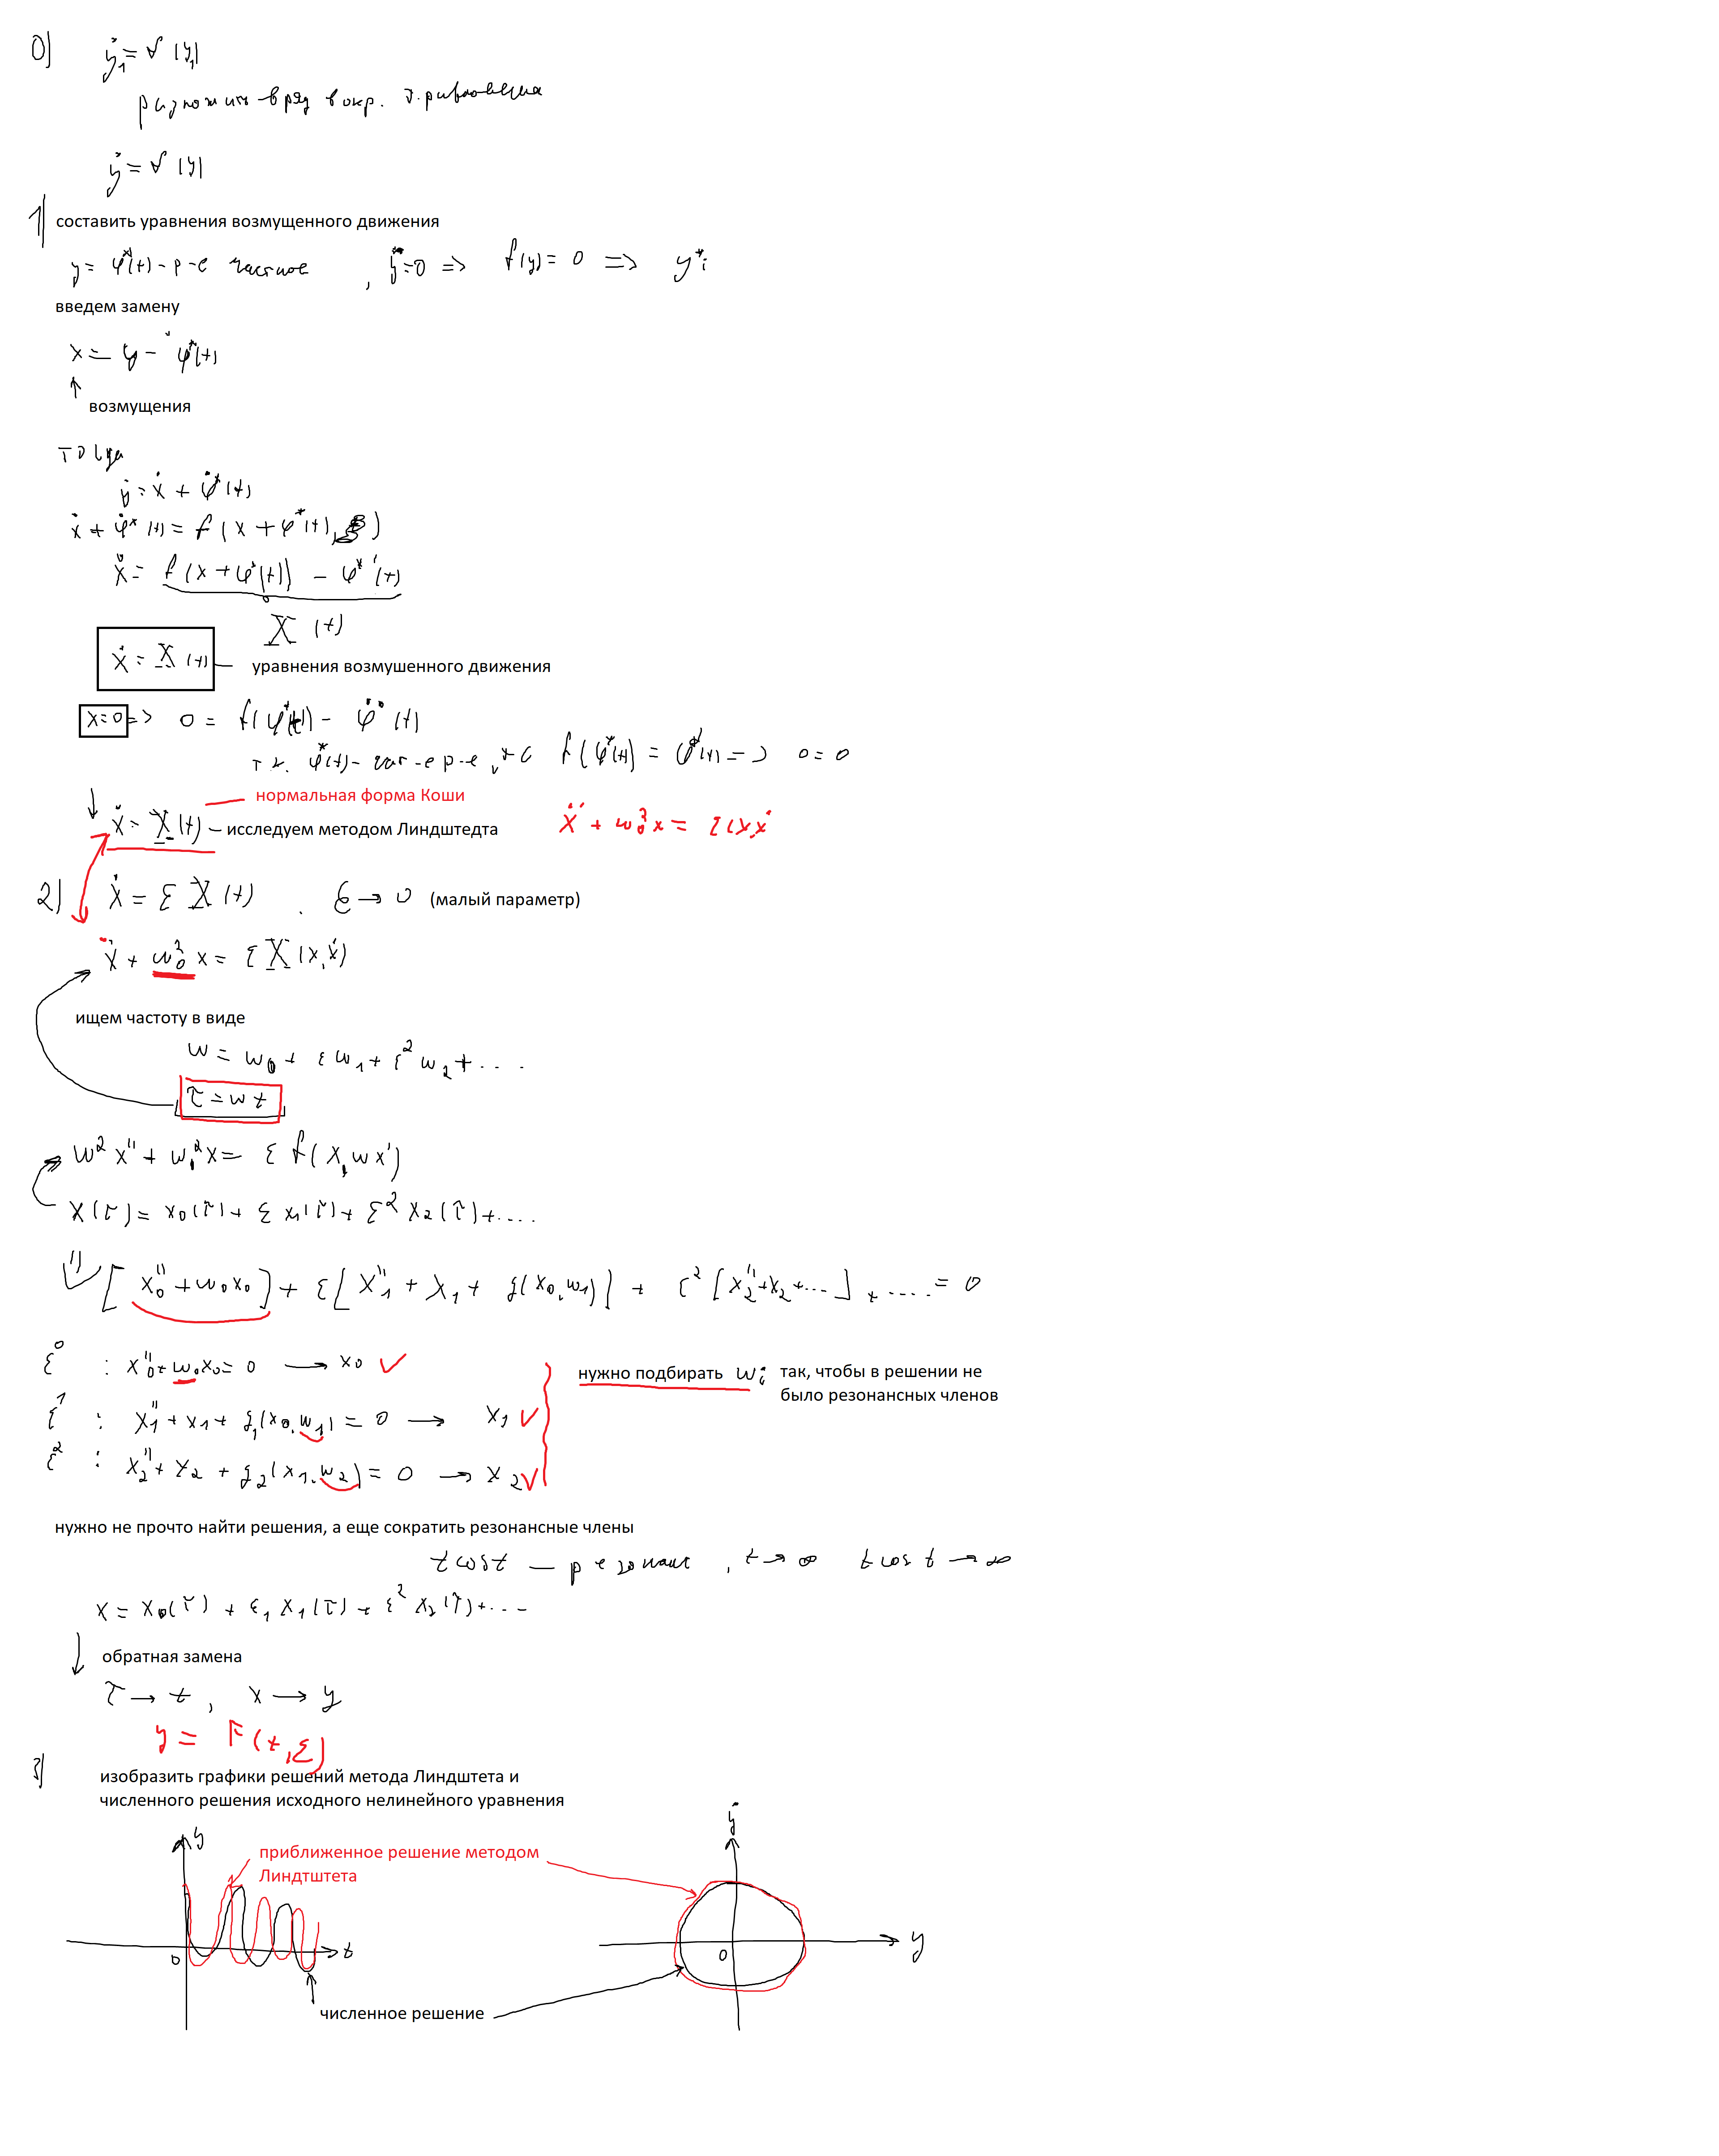 0) ẏ₁ = f(y₁)
разложить в ряд в окр. т. равновесия
ẏ = f(y)
1) составить уравнения возмущенного движения
y = φ*(t) - р-е частное , ẏ* = 0 => f(y) = 0 => y*ᵢ
введем замену
x = y - φ*(t)
↑
возмущения
тогда
ẏ = ẋ + φ̇*(t)
ẋ + φ̇*(t) = f(x + φ*(t))
ẋ = f(x + φ*(t)) - φ̇*(t)
X(t)
ẋ = X(t) — уравнения возмушенного движения
x=0 => 0 = f(φ*(t)) - φ̇*(t)
т.к. φ*(t) - час-е р-е, то f(φ*(t)) = φ̇*(t) => 0 = 0
нормальная форма Коши
ẋ = X(t) — исследуем методом Линдштедта ẍ + w₀²x = ε(x,ẋ
2) ẋ = ε X(t) . ε → 0 (малый параметр)
ẍ + w₀² x = ε X(x,ẋ)
ищем частоту в виде
w = w₀ + εw₁ + ε²w₂ + ....
τ = wt
w²x'' + w₀²x = ε f(x, wx')
x(τ) = x₀(τ) + εx₁(τ) + ε²x₂(τ) + ....
[x₀'' + w₀x₀] + ε[x₁'' + x₁ + g(x₀,w₁)] + ε²[x₂'' + x₂ + ...] + .... = 0
ε⁰ : x₀'' + w₀x₀ = 0 → x₀ ✓
нужно подбирать wᵢ так, чтобы в решении не
было резонансных членов
ε¹ : x₁'' + x₁ + g₁(x₀,w₁) = 0 → x₁ ✓
ε² : x₂'' + x₂ + g₂(x₁,w₂) = 0 → x₂ ✓
нужно не прочто найти решения, а еще сократить резонансные члены
t cos t — резонанс , t → ∞ t cos t → ∞
x = x₀(τ) + ε₁x₁(τ) + ε²x₂(τ) + ....
↓ обратная замена
τ → t , x → y
y = F(t,ε)
3) изобразить графики решений метода Линдштета и
численного решения исходного нелинейного уравнения
y
ẏ
приближенное решение методом
Линдтштета
0 t
0 y
численное решение